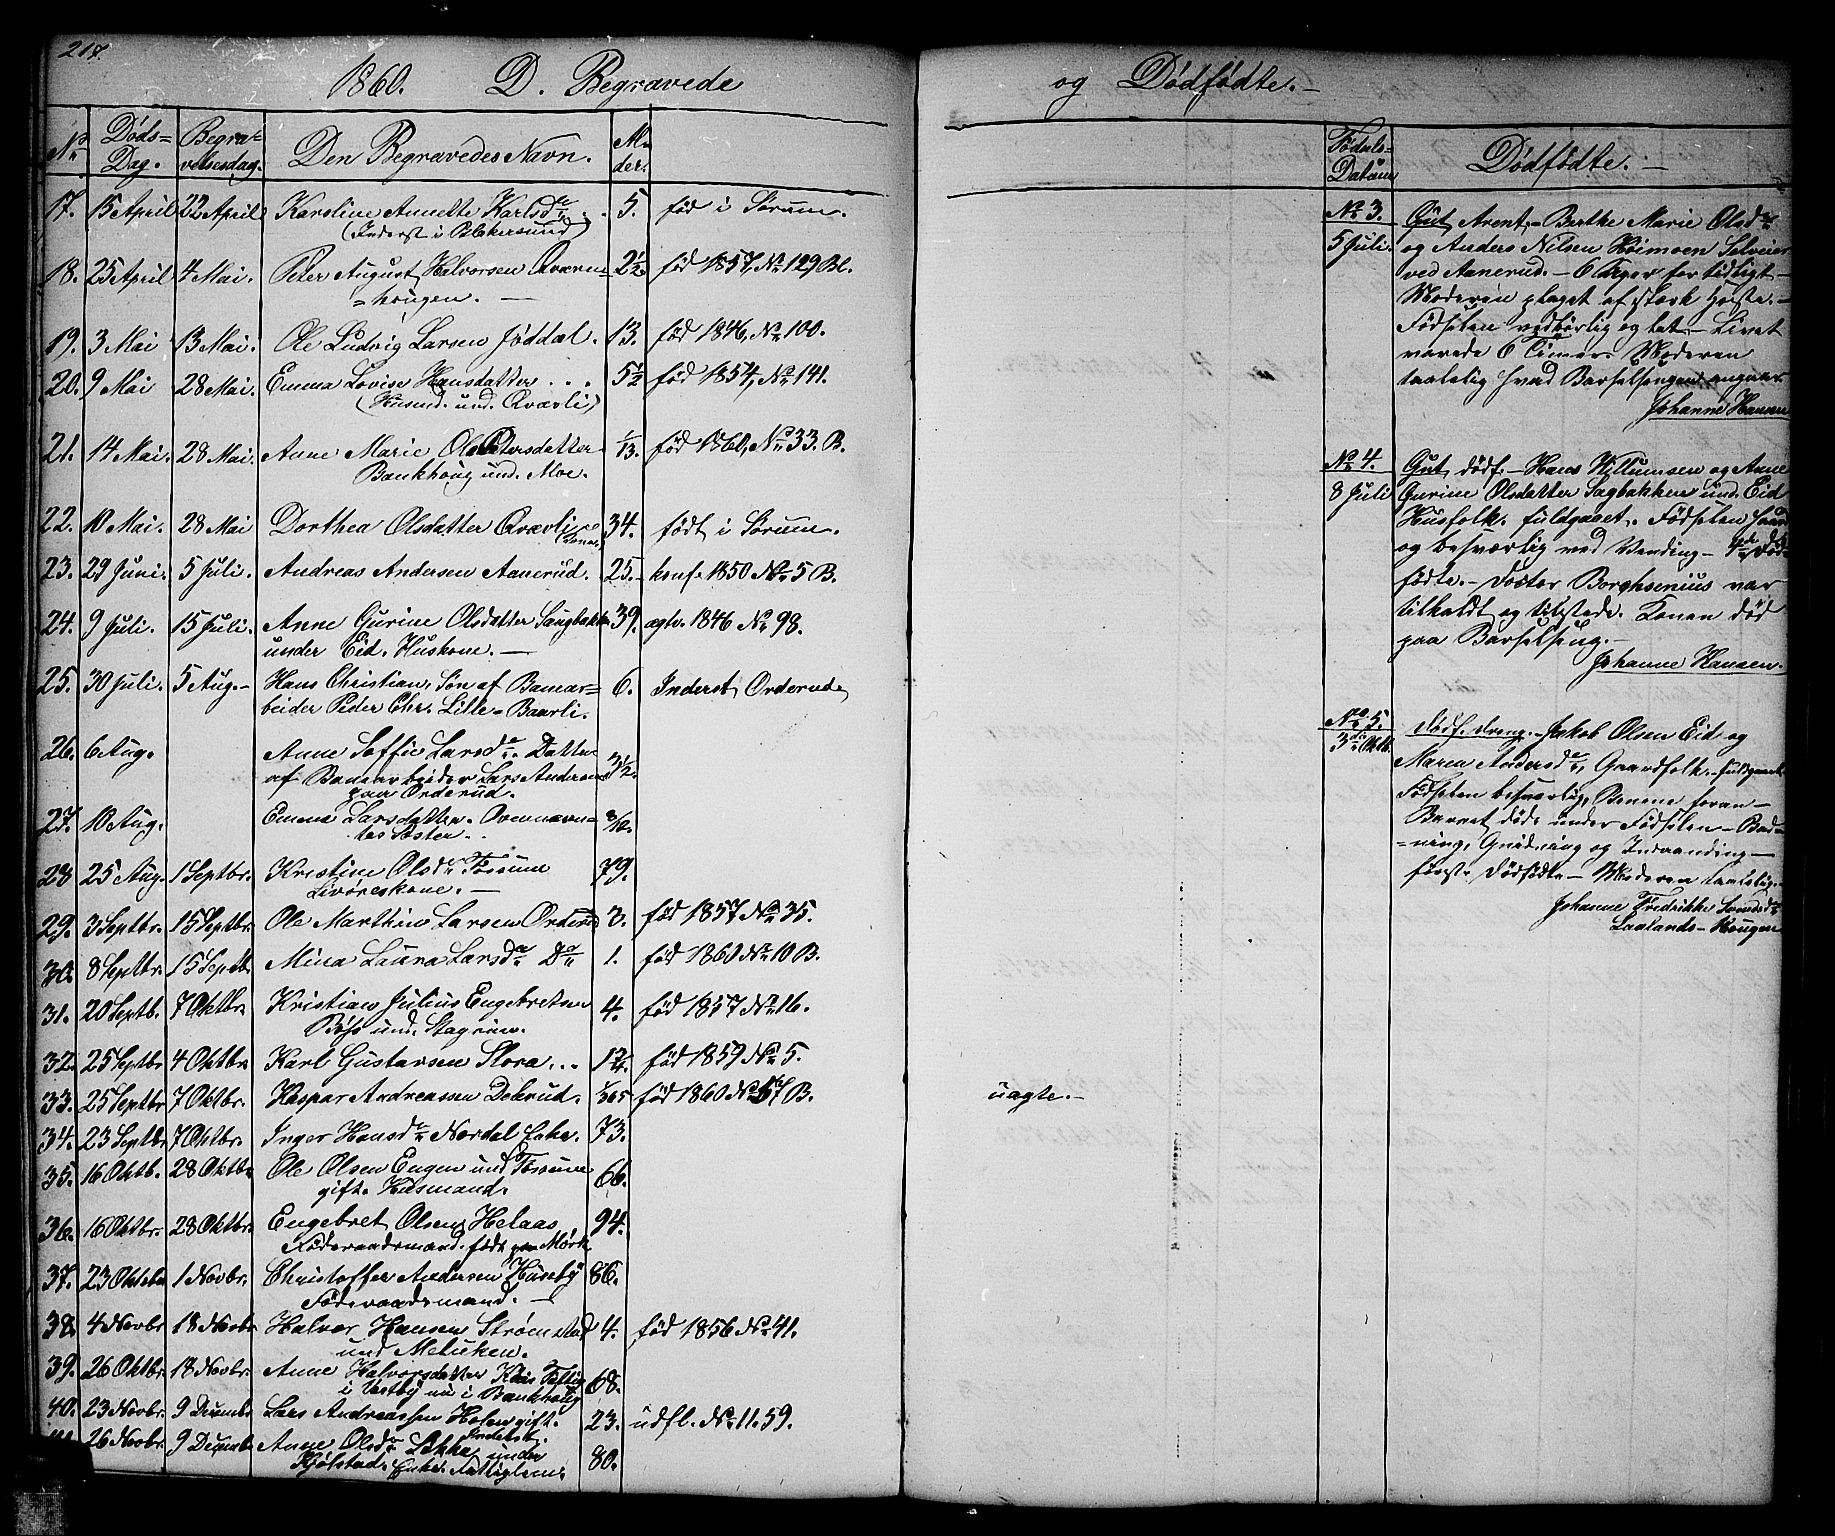 217.
1860. D. Begravede
No Døds= Dag. Begra= velsesdag. Den Begravedes Navn. Al= der.
17. 15 April 22 April Karoline Annette Karlsda . . 5. fød i Sørum.
(Inderst i Blakersund)
18. 25 April 4 Mai. Peter August Halvorsen Qværn= 2½ fød 1857, No 129 Bl.
=hougen. —
19. 3 Mai 13 Mai. Ole Ludvig Larsen Jøddal. 13. fød 1846, No 100.
20. 9 Mai 28 Mai. Emma Lovise Hansdatter . . . 5½ fød 1854, No 141.
(Husmd. und. Qvævli)
21. 14 Mai. 28 Mai. Anne Marie Petersdatter 1/13. fød 1860, No 33. B.
Bankhoug und. Moe.
22. 10 Mai. 28 Mai Dorthea Olsdatter Qvævli 34. født i Sørum.
(Kone)
23. 29 Juni. 5 Juli. Andreas Andersen Aanerud. 25. konf. 1850 No 5 B.
24. 9 Juli. 15 Juli. Anne Gurine Olsdatter Saugbakk 39. ægtv. 1846 No 98.
under Eid. Huskone. —
25. 30 Juli. 5 Aug. Hans Christian, Søn af Banear= 6. Inderst Orderud
beider Peder Chr. Lille-Baarli.
26. 6 Aug. Anne Soffie Larsda. Datter 3½.
af Banearbeider Lars Andersen
paa Orderud.
27. 10 Aug. Emma Larsdatter. Ovennævn= 8/12.
tes Søster.
28 25 Aug. 1 Septbr. Kristine Olsda Fossum 79.
Livøreskone. —
29. 3 Septbr. 15 Septbr. Ole Marthin Larsen Orderud 3. fød 1857 No 35.
30. 8 Septbr. 15 Septb. Mina Laura Larsda Do 1. fød 1860 No 10 B.
31. 20 Septb. 7 Oktbr. Kristian Julius Engebretsen 4. fød 1857 No 16.
und. Stagrim.
32. 25 Septbr 4 Oktbr. Karl Gustavsen Slora . . . 1¾. fød 1859 No 5.
33. 25 Septbr 7 Oktbr. Kaspar Andreassen Dehrud. 1/365 fød 1860 No 57 B.
34. 23 Septbr. 7 Oktbr. Inger Hansda Nordal Enke. 73.
35. 16 Oktb. 28 Oktbr. Ole Olsen Engen und Fossum 66.
gift. Husmand.
36. 16 Oktbr. 28 Oktbr. Engebret Olsen Helaas 94.
Føderaadsmand. født paa Mørk
37. 23 Oktbr 1 Novbr. Christoffer Andersen Huseby 86.
Føderaadsmand. —
38. 4 Novbr 18 Novbr Halvor Hansen Strømstad 4. fød 1856 No 41.
und
39. 26 Oktbr. 18 Novbr. Anne Halvorsdatter
i Vestby nu i Bankhoug 68.
40. 23 Novbr. 9 Decembr Lars Andreassen Holen gift. 23. udfl. No 11. 59.
Inderst.
26 Novbr. 9 Decembr Anne Olsda Løkke under 80.
Kjølstad. Enke. Fattiglem.
og Dødfødte. —
Fødsels= Datum Dødfødte. —
uægte. —
No 3.
5 Juli.
Gut Arent. — Berthe Marie Olsda
og Anders Nilsen Høimoen Selveier
ved Aanerud. — 6 Uger for tidligt —
Moderen plaget af stærk Hoste. —
Fødselen vedbørlig og let. — Livet
varede 6 Timer. Moderen
taalelig hvad Barselsengen angaar.
Johanne Hansen
No 4.
8 Juli
Gut, dødf. — Hans Hillumsen og Anne
Gurine Olsdatter Sagbakken und. Eid
Husfolk. fuldgaaet. Fødselen haard
og besværlig ved Vending —
fødte. — Doctor Borghsenius var
tilkaldt og tilstede. Konen død
paa Barselseng. —
Johanne Hansen.
No 5.
3die Oktb.
Dødf. dreng. — Jakob Olsen Eid og
Maren Andersda, Gaardfolk. — fuldgaaet.
Fødselen besværlig, Benene foran —
Barnet døde under Fødselen — Bad=
=ning, Gnidning og Indaanding —
første Dødfødte — Moderen taalelig.
Johanne Fredrikke Svendsda
Laalands-Hougen